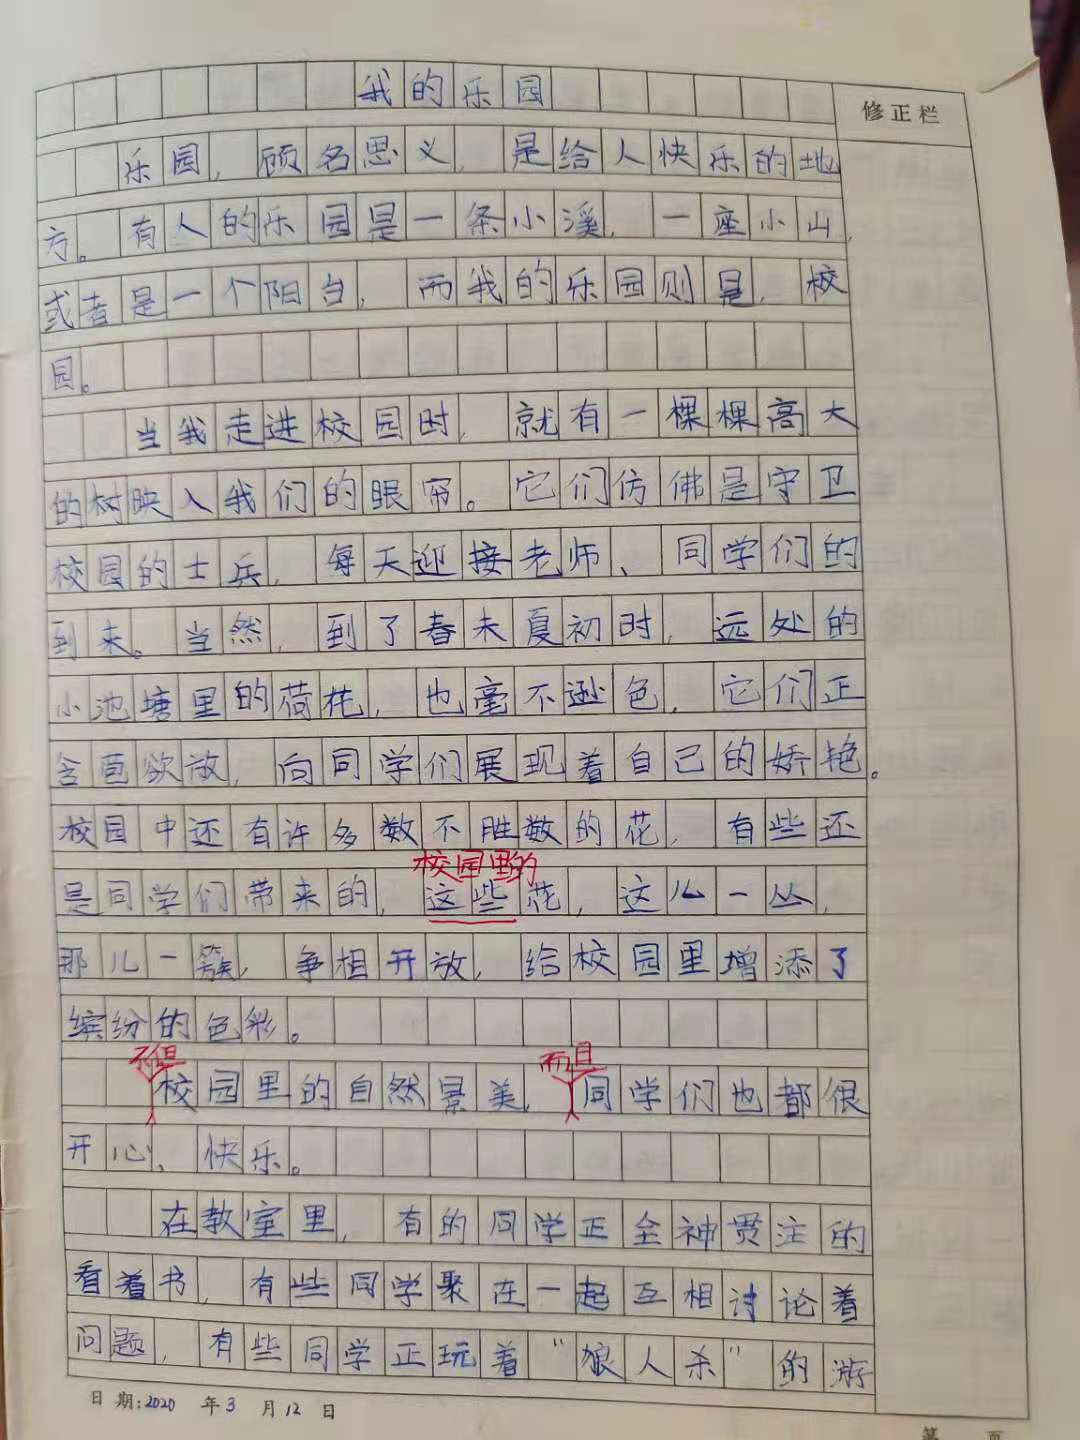 我的乐园
修正栏
乐园，顾名思义，是给人快乐的地
方。有人的乐园是一条小溪，一座小山，
或者是一个阳台，而我的乐园则是，校
园。
当我走进校园时，就有一棵棵高大
的树映入我们的眼帘。它们仿佛是守卫
校园的士兵，每天迎接老师、同学们的
到来。当然，到了春末夏初时，远处的
小池塘里的荷花，也毫不逊色，它们正
含苞欲放，向同学们展现着自己的娇艳。
校园中还有许多数不胜数的花，有些还
校园里的
是同学们带来的，这些花，这儿一丛，
那儿一簇，争相开放，给校园里增添了
缤纷的色彩。
不但 而且
校园里的自然景美，同学们也都很
开心、快乐。
在教室里，有的同学正全神贯注的
看着书，有些同学聚在一起互相讨论着
问题，有些同学正玩着“狼人杀”的游
日期:2020 年3 月12 日
第 页